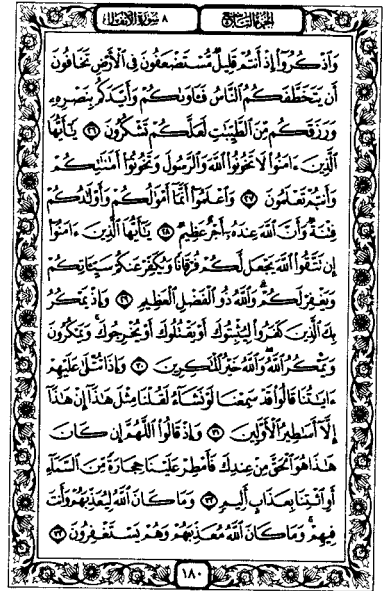 الجزء التاسع ٨ سورة الأنفال
وَاذْكُرُوا إِذْ أَنتُمْ قَلِيلٌ مُّسْتَضْعَفُونَ فِي الْأَرْضِ تَخَافُونَ
أَن يَتَخَطَّفَكُمُ النَّاسُ فَآوَىٰكُمْ وَأَيَّدَكُم بِنَصْرِهِ
وَرَزَقَكُم مِّنَ الطَّيِّبَٰتِ لَعَلَّكُمْ تَشْكُرُونَ ٢٦ يَٰٓأَيُّهَا
الَّذِينَ ءَامَنُوا لَا تَخُونُوا اللَّهَ وَالرَّسُولَ وَتَخُونُوٓا أَمَٰنَٰتِكُمْ
وَأَنتُمْ تَعْلَمُونَ ٢٧ وَاعْلَمُوٓا أَنَّمَآ أَمْوَٰلُكُمْ وَأَوْلَٰدُكُمْ
فِتْنَةٌ وَأَنَّ اللَّهَ عِندَهُٓ أَجْرٌ عَظِيمٌ ٢٨ يَٰٓأَيُّهَا الَّذِينَ ءَامَنُوٓا
إِن تَتَّقُوا اللَّهَ يَجْعَل لَّكُمْ فُرْقَانًا وَيُكَفِّرْ عَنكُمْ سَيِّـَٔاتِكُمْ
وَيَغْفِرْ لَكُمْ وَاللَّهُ ذُو الْفَضْلِ الْعَظِيمِ ٢٩ وَإِذْ يَمْكُرُ
بِكَ الَّذِينَ كَفَرُوا لِيُثْبِتُوكَ أَوْ يَقْتُلُوكَ أَوْ يُخْرِجُوكَ وَيَمْكُرُونَ
وَيَمْكُرُ اللَّهُ وَاللَّهُ خَيْرُ الْمَٰكِرِينَ ٣٠ وَإِذَا تُتْلَىٰ عَلَيْهِمْ
ءَايَٰتُنَا قَالُوا قَدْ سَمِعْنَا لَوْ نَشَآءُ لَقُلْنَا مِثْلَ هَٰذَآ إِنْ هَٰذَآ
إِلَّآ أَسَٰطِيرُ الْأَوَّلِينَ ٣١ وَإِذْ قَالُوا اللَّهُمَّ إِن كَانَ
هَٰذَا هُوَ الْحَقَّ مِنْ عِندِكَ فَأَمْطِرْ عَلَيْنَا حِجَارَةً مِّنَ السَّمَآءِ
أَوِ ائْتِنَا بِعَذَابٍ أَلِيمٍ ٣٢ وَمَا كَانَ اللَّهُ لِيُعَذِّبَهُمْ وَأَنتَ
فِيهِمْ وَمَا كَانَ اللَّهُ مُعَذِّبَهُمْ وَهُمْ يَسْتَغْفِرُونَ ٣٣
١٨٠